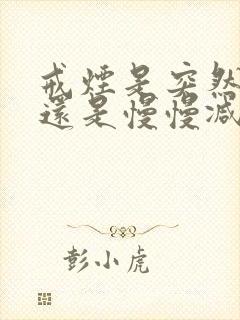 戒煙是突然
還是慢慢減
彭小虎